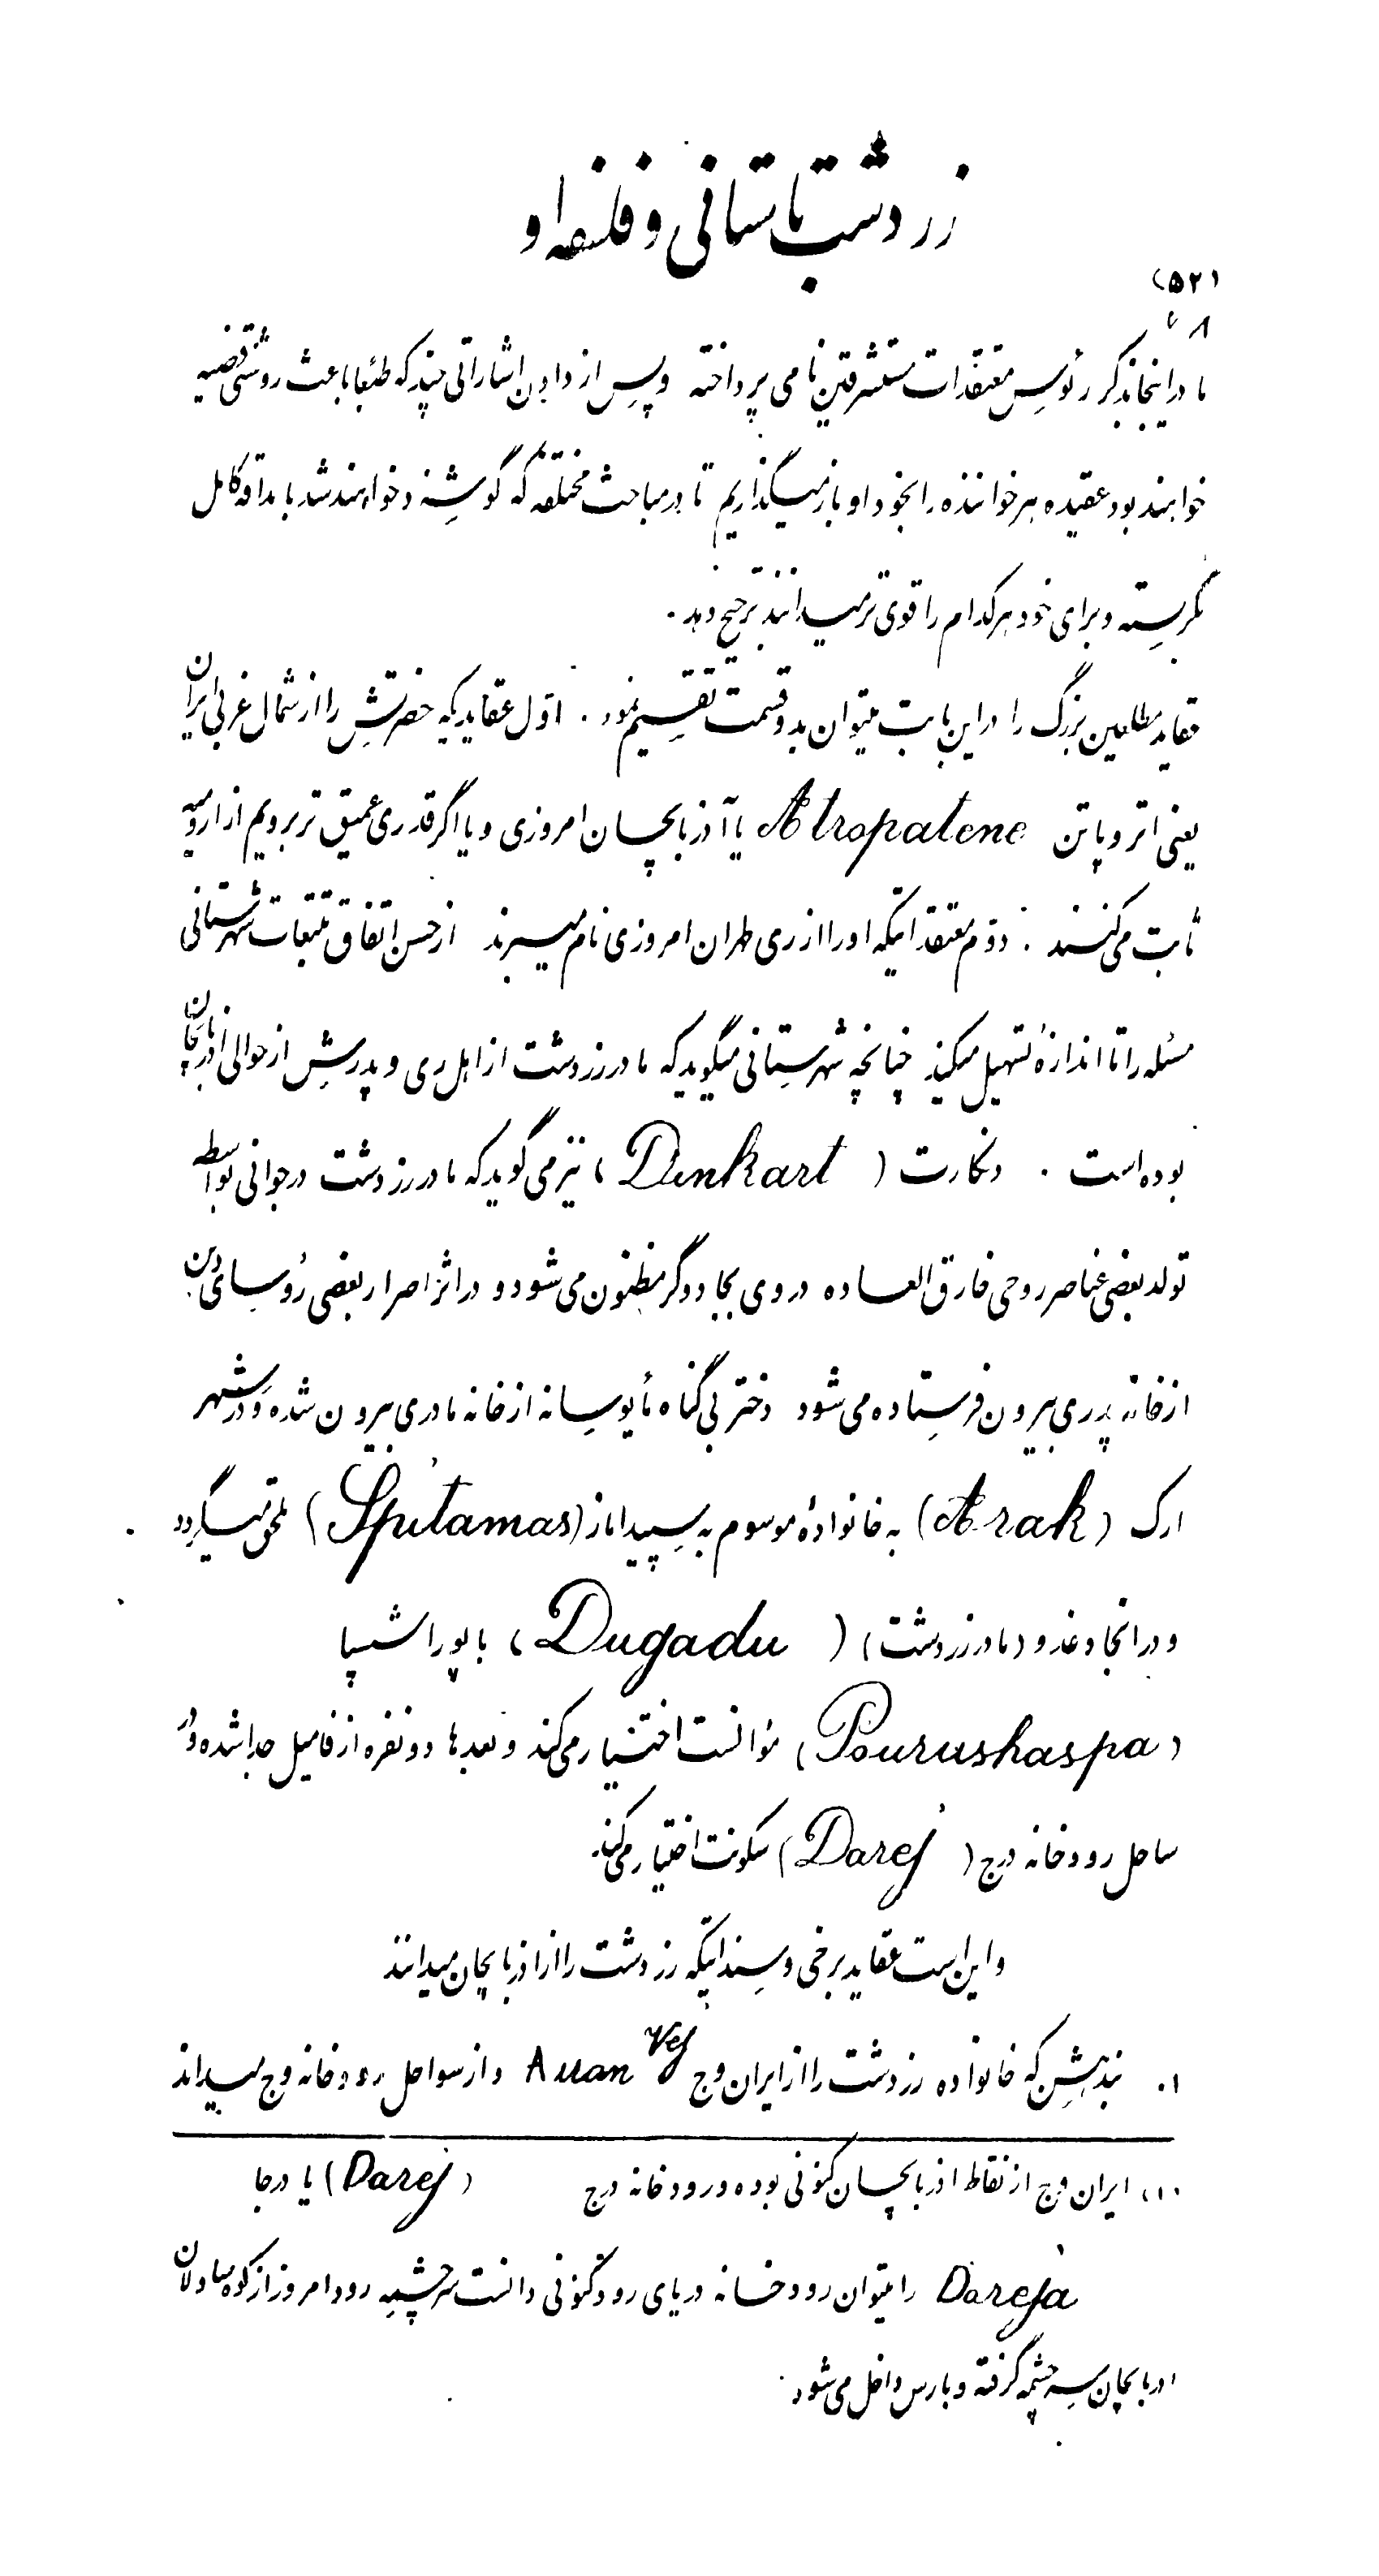 زردشت باستانی و فلسفه او
(۵۲)
۷۸
ما در اینجا بذکر رئوس معتقدات مستشرقین نامی پرداخته و پس از دادن اشاراتی چند که طبعا باعث روشنی قضیه
خواهند بود عقیده هر خواننده را بخود او باز میگذاریم تا در مباحث مختلفه که گوشزد خواهند شد با مداقه کامل
نگریسته و برای خود هر کدام را قوی تر میدانند ترجیح دهد .
عقاید مطلعین بزرگ را در این بابت میتوان بدو قسمت تقسیم نمود . اول عقایدیکه حضرتش را از شمال غربی ایران
یعنی اتروپاتن Atropatene یا آذربایجان امروزی و یا اگر قدری عمیق تر برویم از ارومیه
ثابت می کنند . دوم معتقداتیکه او را از ری طهران امروزی نام میبرند از حسن اتفاق تتبعات شهرستانی
مسئله را تا اندازهٔ تسهیل میکند چنانچه شهرستانی میگوید که مادر زردشت از اهل ری و پدرش از حوالی آذربایجان
بوده است . دنکارت (Denkart) نیز می گوید که مادر زردشت در جوانی بواسطه
تولد بعضی عناصر روحی خارق العاده در وی بجادوگر مظنون می شود و در اثر اصرار بعضی رؤسای دین
از خانه پدری بیرون فرستاده می شود دختر بی گناه مأیوسانه از خانه مادری بیرون شده و در شهر
ارک (Arak) به خانوادهٔ موسوم به سپیداماز (Spitamas) ملحق میگردد
و در انجا دغدو (مادر زردشت) (Dugadu) با پوراشسپا
(Pourushaspa) مؤانست اختیار می کند و بعدها دو نفره از فامیل جدا شده و در
ساحل رودخانه درج (Darej) سکونت اختیار می کند.
و این است عقاید برخی و سنداتیکه زردشت را از اذربایجان میدانند
۱. بندهشن که خانواده زردشت را از ایران وج Airan Vej و از سواحل رودخانه وج میداند
(۱) ایران وج از نقاط اذربایجان کنونی بوده و رودخانه درج (Darej) یا درجا
Dareja را میتوان رودخانه دریای رود کنونی دانست سرچشمه رود امروز از کوه ساولان
اذربایجان سرچشمه گرفته و بارس داخل می شود.